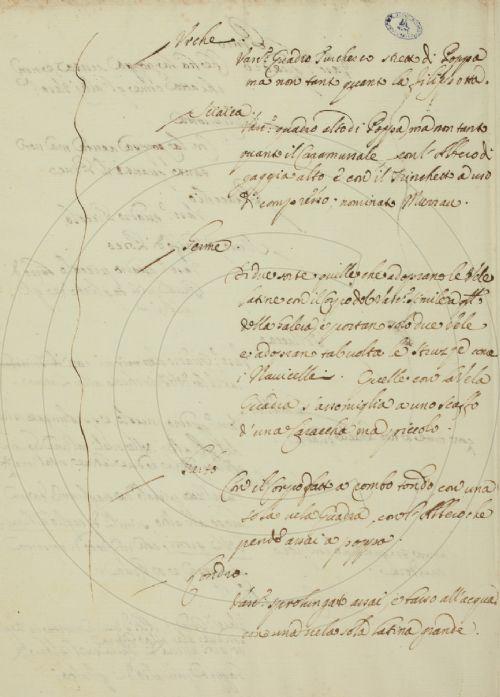 Urche.
Vasc.º Quadro Turchesco strett.º di Poppa
ma non tant.º quanto la
Sciaica.
quadro alto di Poppa ma non tanto
quanto il Caramussale, con l'Albero di
gaggia alto è con il Trinchetto a uso
di compresso nominato
Germe
Di due sorte quelle che adoprano le Vele
latine con il corpo del Vasc.º simile a
della Galea, e portano solo due Vele
e adoprano talvolta le come
i Navicelli. Quelle con la Vela
Quadra s'assomiglia a uno scaffo
d'una Caravella ma piccolo.
Con il Corpo fatto a combo tondo con una
sola vela Quadra, con l'Albero che
pende assai a poppa.
Londro.
prolungato assai, e basso all'acqua
con una vela sola latina grande.